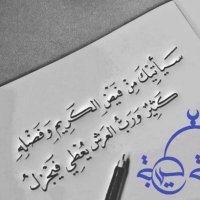 سَيَأْتِيكَ مِنْ فَيْضِ الكَرِيمِ وَفَضْلِهِ
كَثِيرٌ وَرَبُّ العَرْشِ يُعْطِي فَيُجْزِلُ